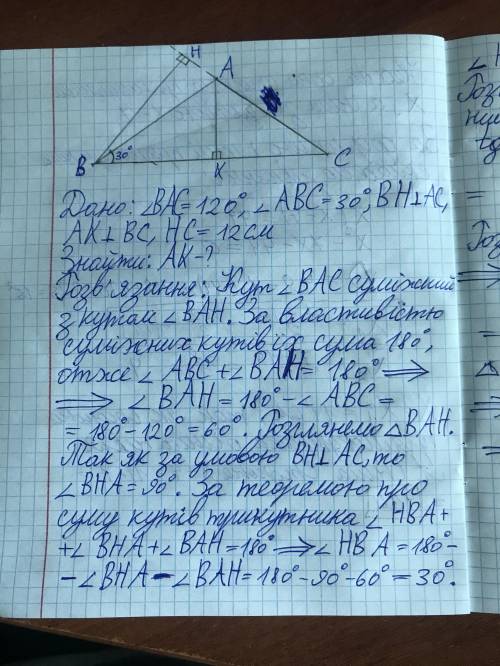 H
A
B 30° K C
Дано: ∠BAC=120°, ∠ABC=30°, BH⊥AC,
AK⊥BC, HC=12см
Знайти: AK-?
Розв'язання: Кут ∠BAC суміжний
з кутом ∠BAH. За властивістю
суміжних кутів їх сума 180°,
отже ∠ABC+∠BAH=180° ⟹
⟹ ∠BAH=180°-∠ABC=
=180°-120°=60°. Розглянемо △BAH.
Так як за умовою BH⊥AC, то
∠BHA=90°. За теоремою про
суму кутів трикутника ∠HBA+
+∠BHA+∠BAH=180° ⟹ ∠HBA=180°-
-∠BHA-∠BAH=180°-90°-60°=30°.